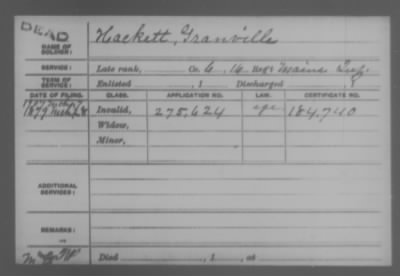 DEAD
NAME OF SOLDIER: Hackett, Granville
SERVICE: Late rank, Co. G, 16 Reg't Maine Inf.
TERM OF SERVICE: Enlisted , 1 Discharged , 1
DATE OF FILING. CLASS. APPLICATION NO. LAW. CERTIFICATE NO.
1879 Invalid, 275,624 184,740
Widow,
Minor,
ADDITIONAL SERVICES:
REMARKS:
Died , 1 , at